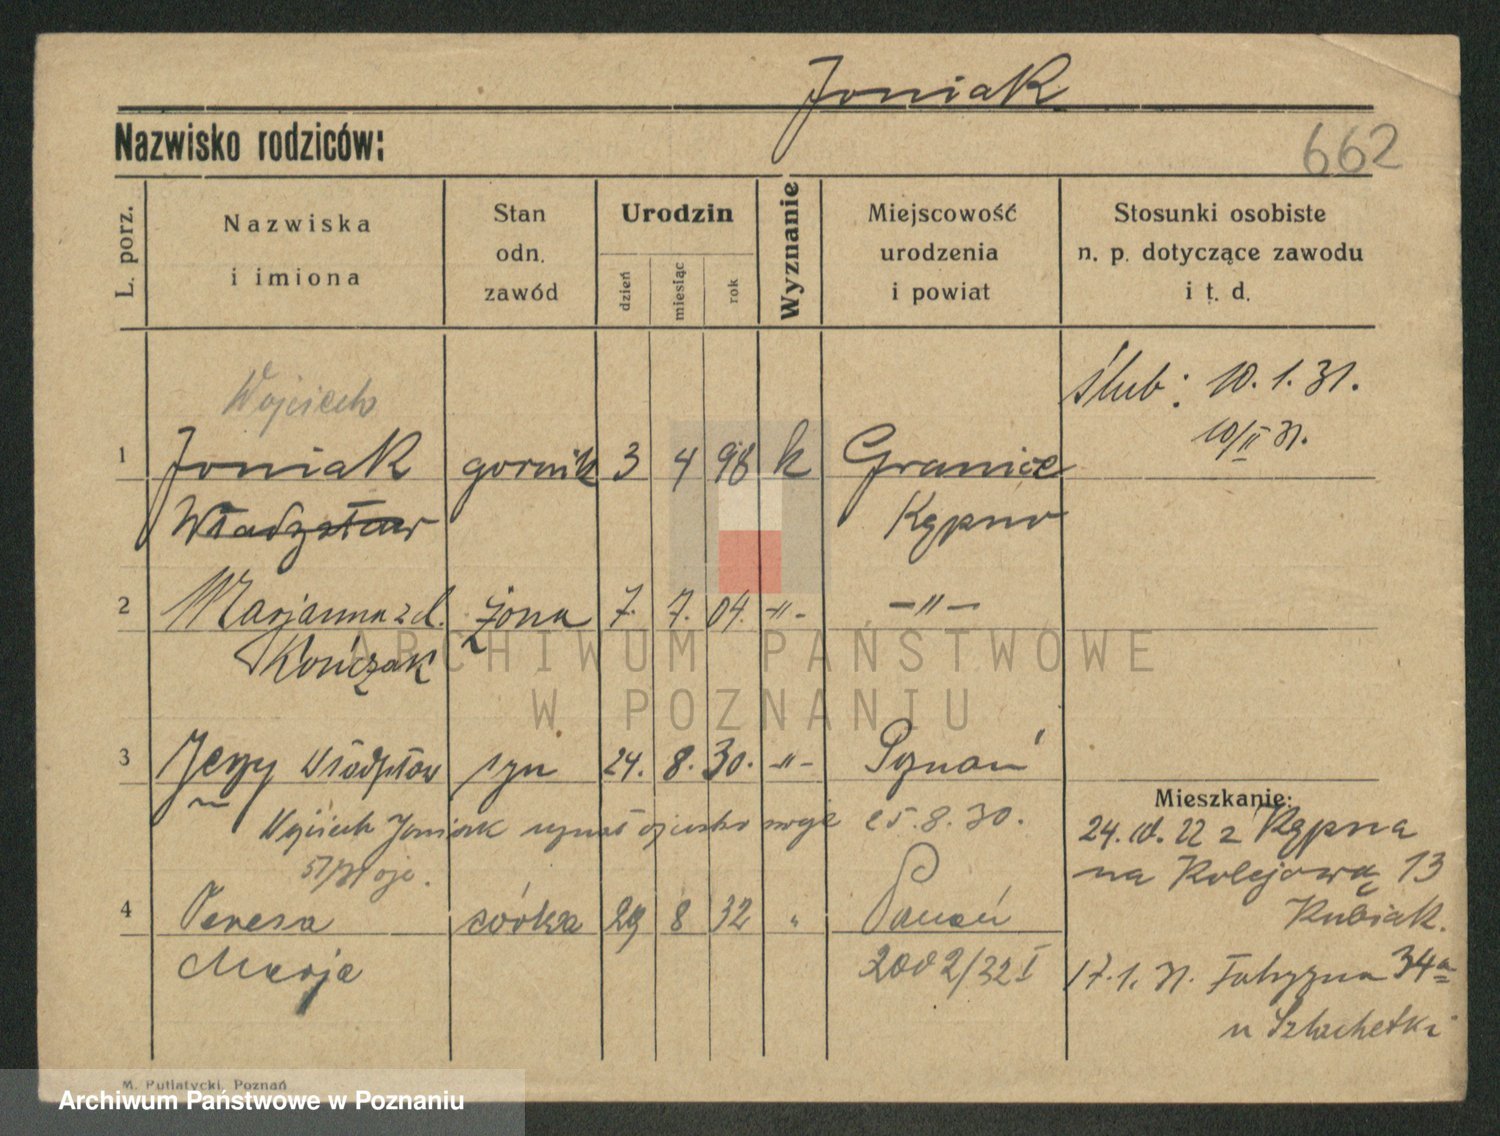 Joniak
Nazwisko rodziców:
662
L. porz.
Nazwiska
i imiona
Stan
odn.
zawód
Urodzin
dzień
miesiąc
rok
Wyznanie
Miejscowość
urodzenia
i powiat
Stosunki osobiste
n. p. dotyczące zawodu
i t. d.
Ślub: 10.1.31.
10/II 31.
Wojciech
1 Joniak gornik 3 4 98 k Granice
Władysław Kępno
2 Marjanna z d. żona 7. 7. 04. -"- -"-
Kończak
3 Jerzy Władysław syn 24. 8. 30. -"- Poznań
Wojciech Joniak uznał ojcostwo swoje 25.8.30.
4 Teresa córka 29 8 32 " Poznań
Marja 2002/32 I
Mieszkanie:
24. 22 z Kępna
na Kolejową 13
Kubiak.
17.1.31. Fabryczna 34a
u Szlachetki
M. Putiatycki, Poznań
ARCHIWUM PAŃSTWOWE
W POZNANIU
Archiwum Państwowe w Poznaniu